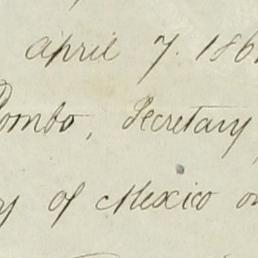 April 7. 186
Pombo, Secretary
y of Mexico on